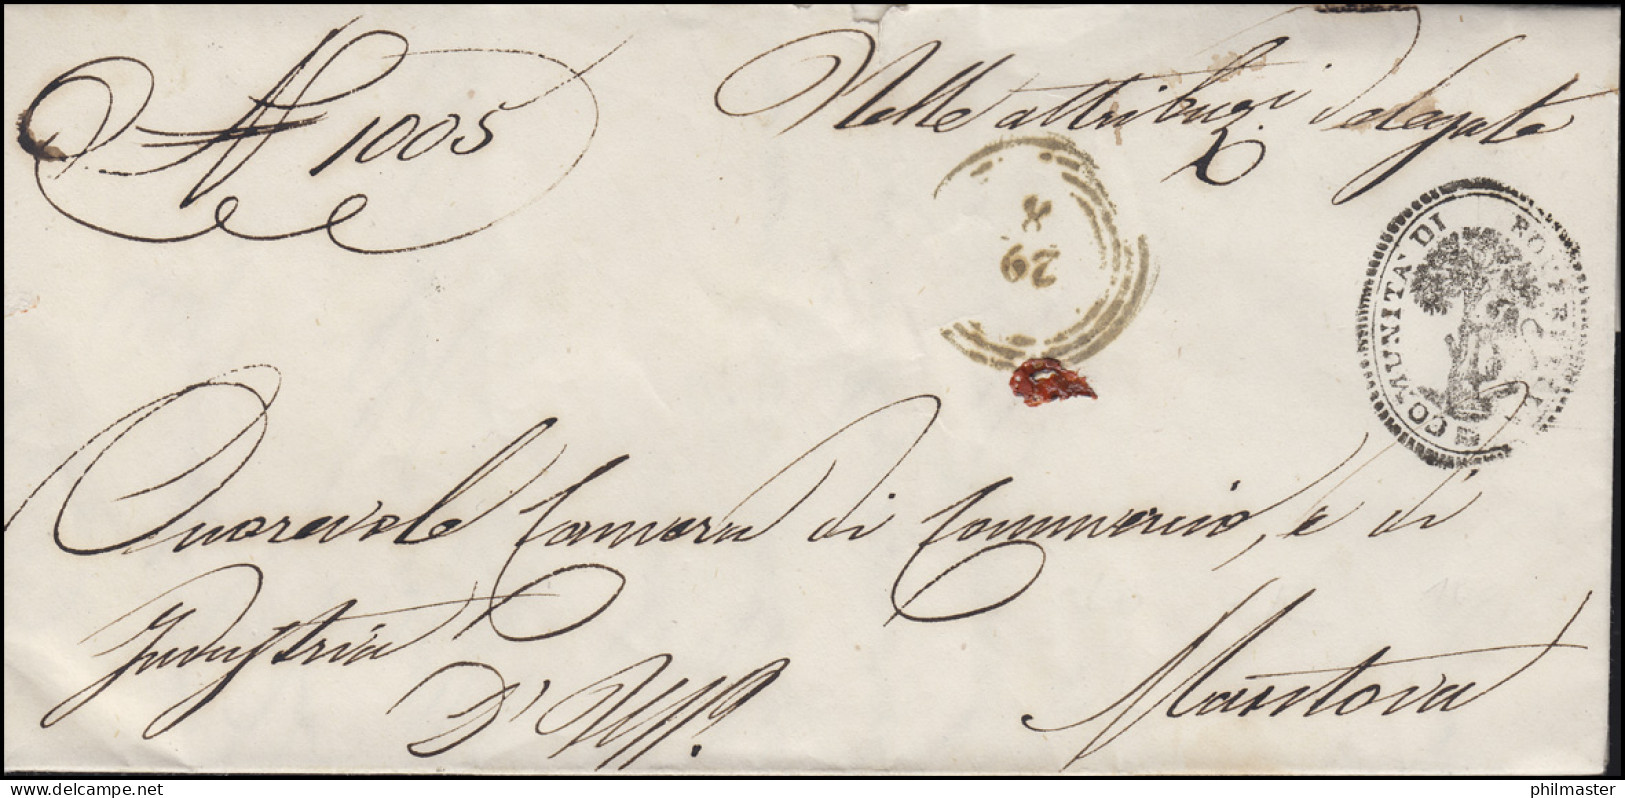 N 1005
Nelle attribuzi Delegate
29
8
COMUNITA' DI
Onorevole Camera di Commercio, e di
Industria
D' Uff.
Mantova
delcampe.net
philmaster